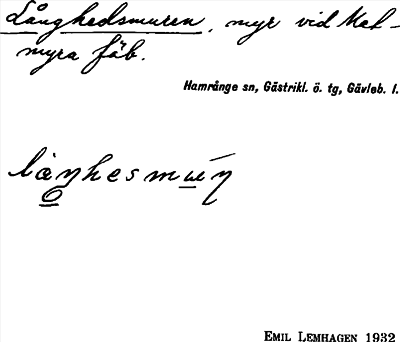 Långhedsmuren, myr vid Kat-
myra fäb.
Hamrånge sn, Gästrikl. ö. tg, Gävleb. l.
EMIL LEMHAGEN 1932